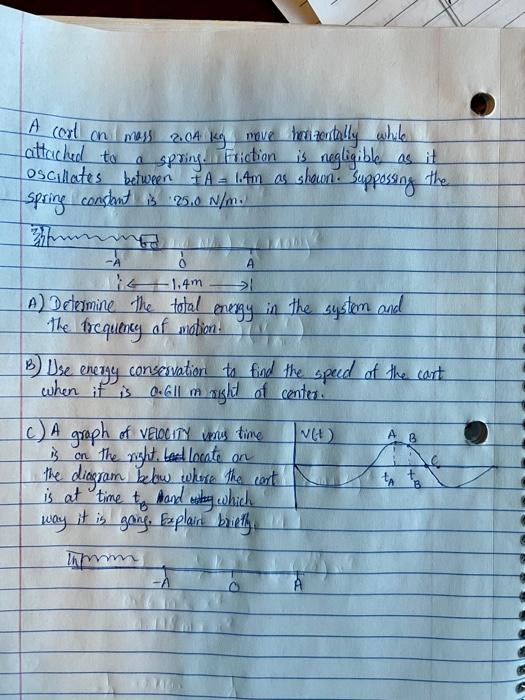 A cart on mass 2.04 kg move horizontally while
attached to a spring. Friction is negligible as it
oscillates between ±A = 1.4m as shown. Suppossing the
spring constant is 25.0 N/m.
-A 0 A
1.4m
A) Determine the total energy in the system and
the frequency of motion.
B) Use energy conservation to find the speed of the cart
when it is 0.611 m right of center.
C) A graph of VELOCITY verus time
is on the right. locate on
the diagram below where the cart
is at time tB and which
way it is going. Explain briefly.
V(t) A B C
tA tB
-A 0 A